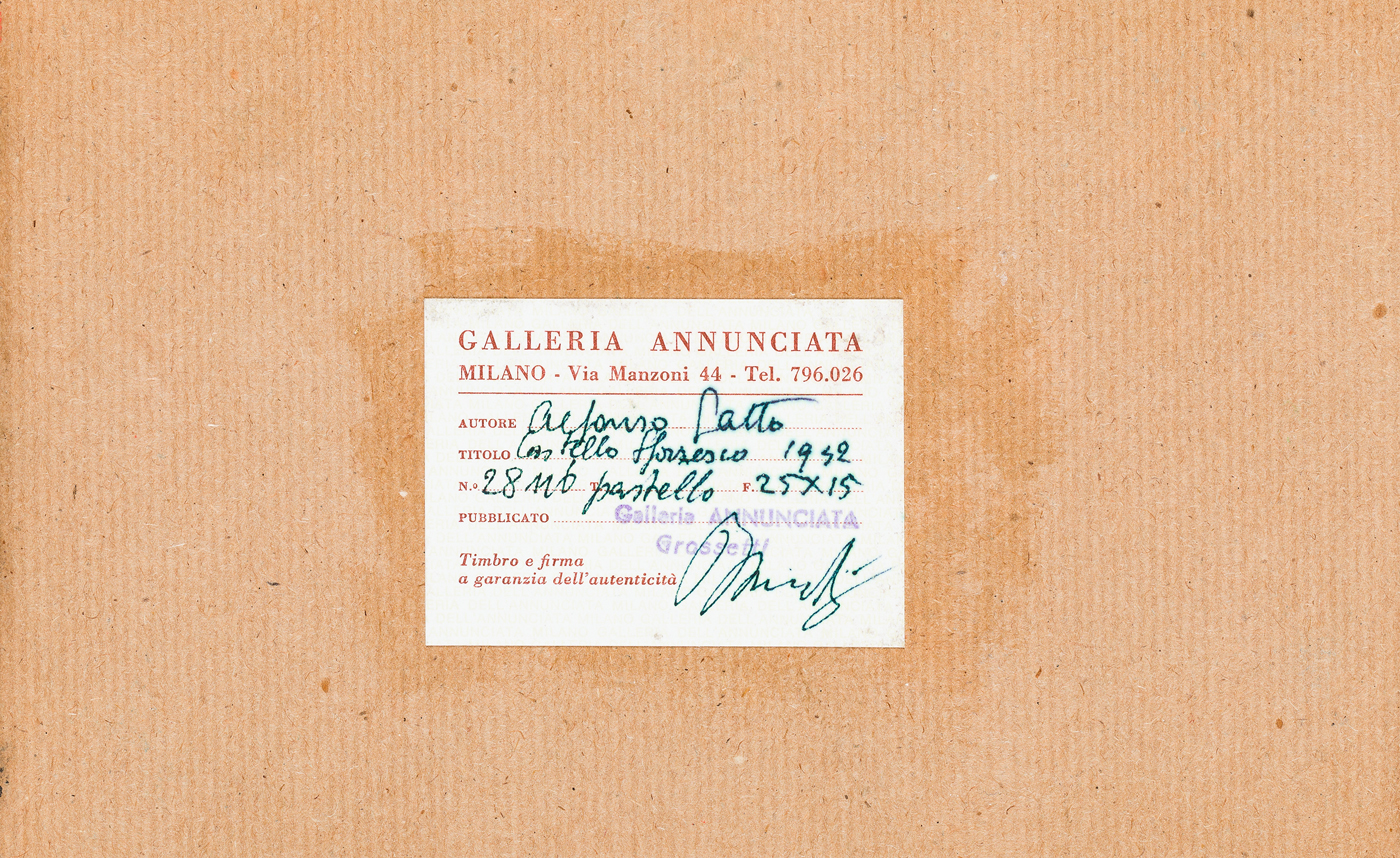 GALLERIA ANNUNCIATA
MILANO - Via Manzoni 44 - Tel. 796.026
AUTORE Alfonso Gatto
TITOLO Castello Sforzesco 1942
N.º 28110 T. pastello F. 25X15
PUBBLICATO
Galleria ANNUNCIATA
Grossetti
Timbro e firma
a garanzia dell'autenticità